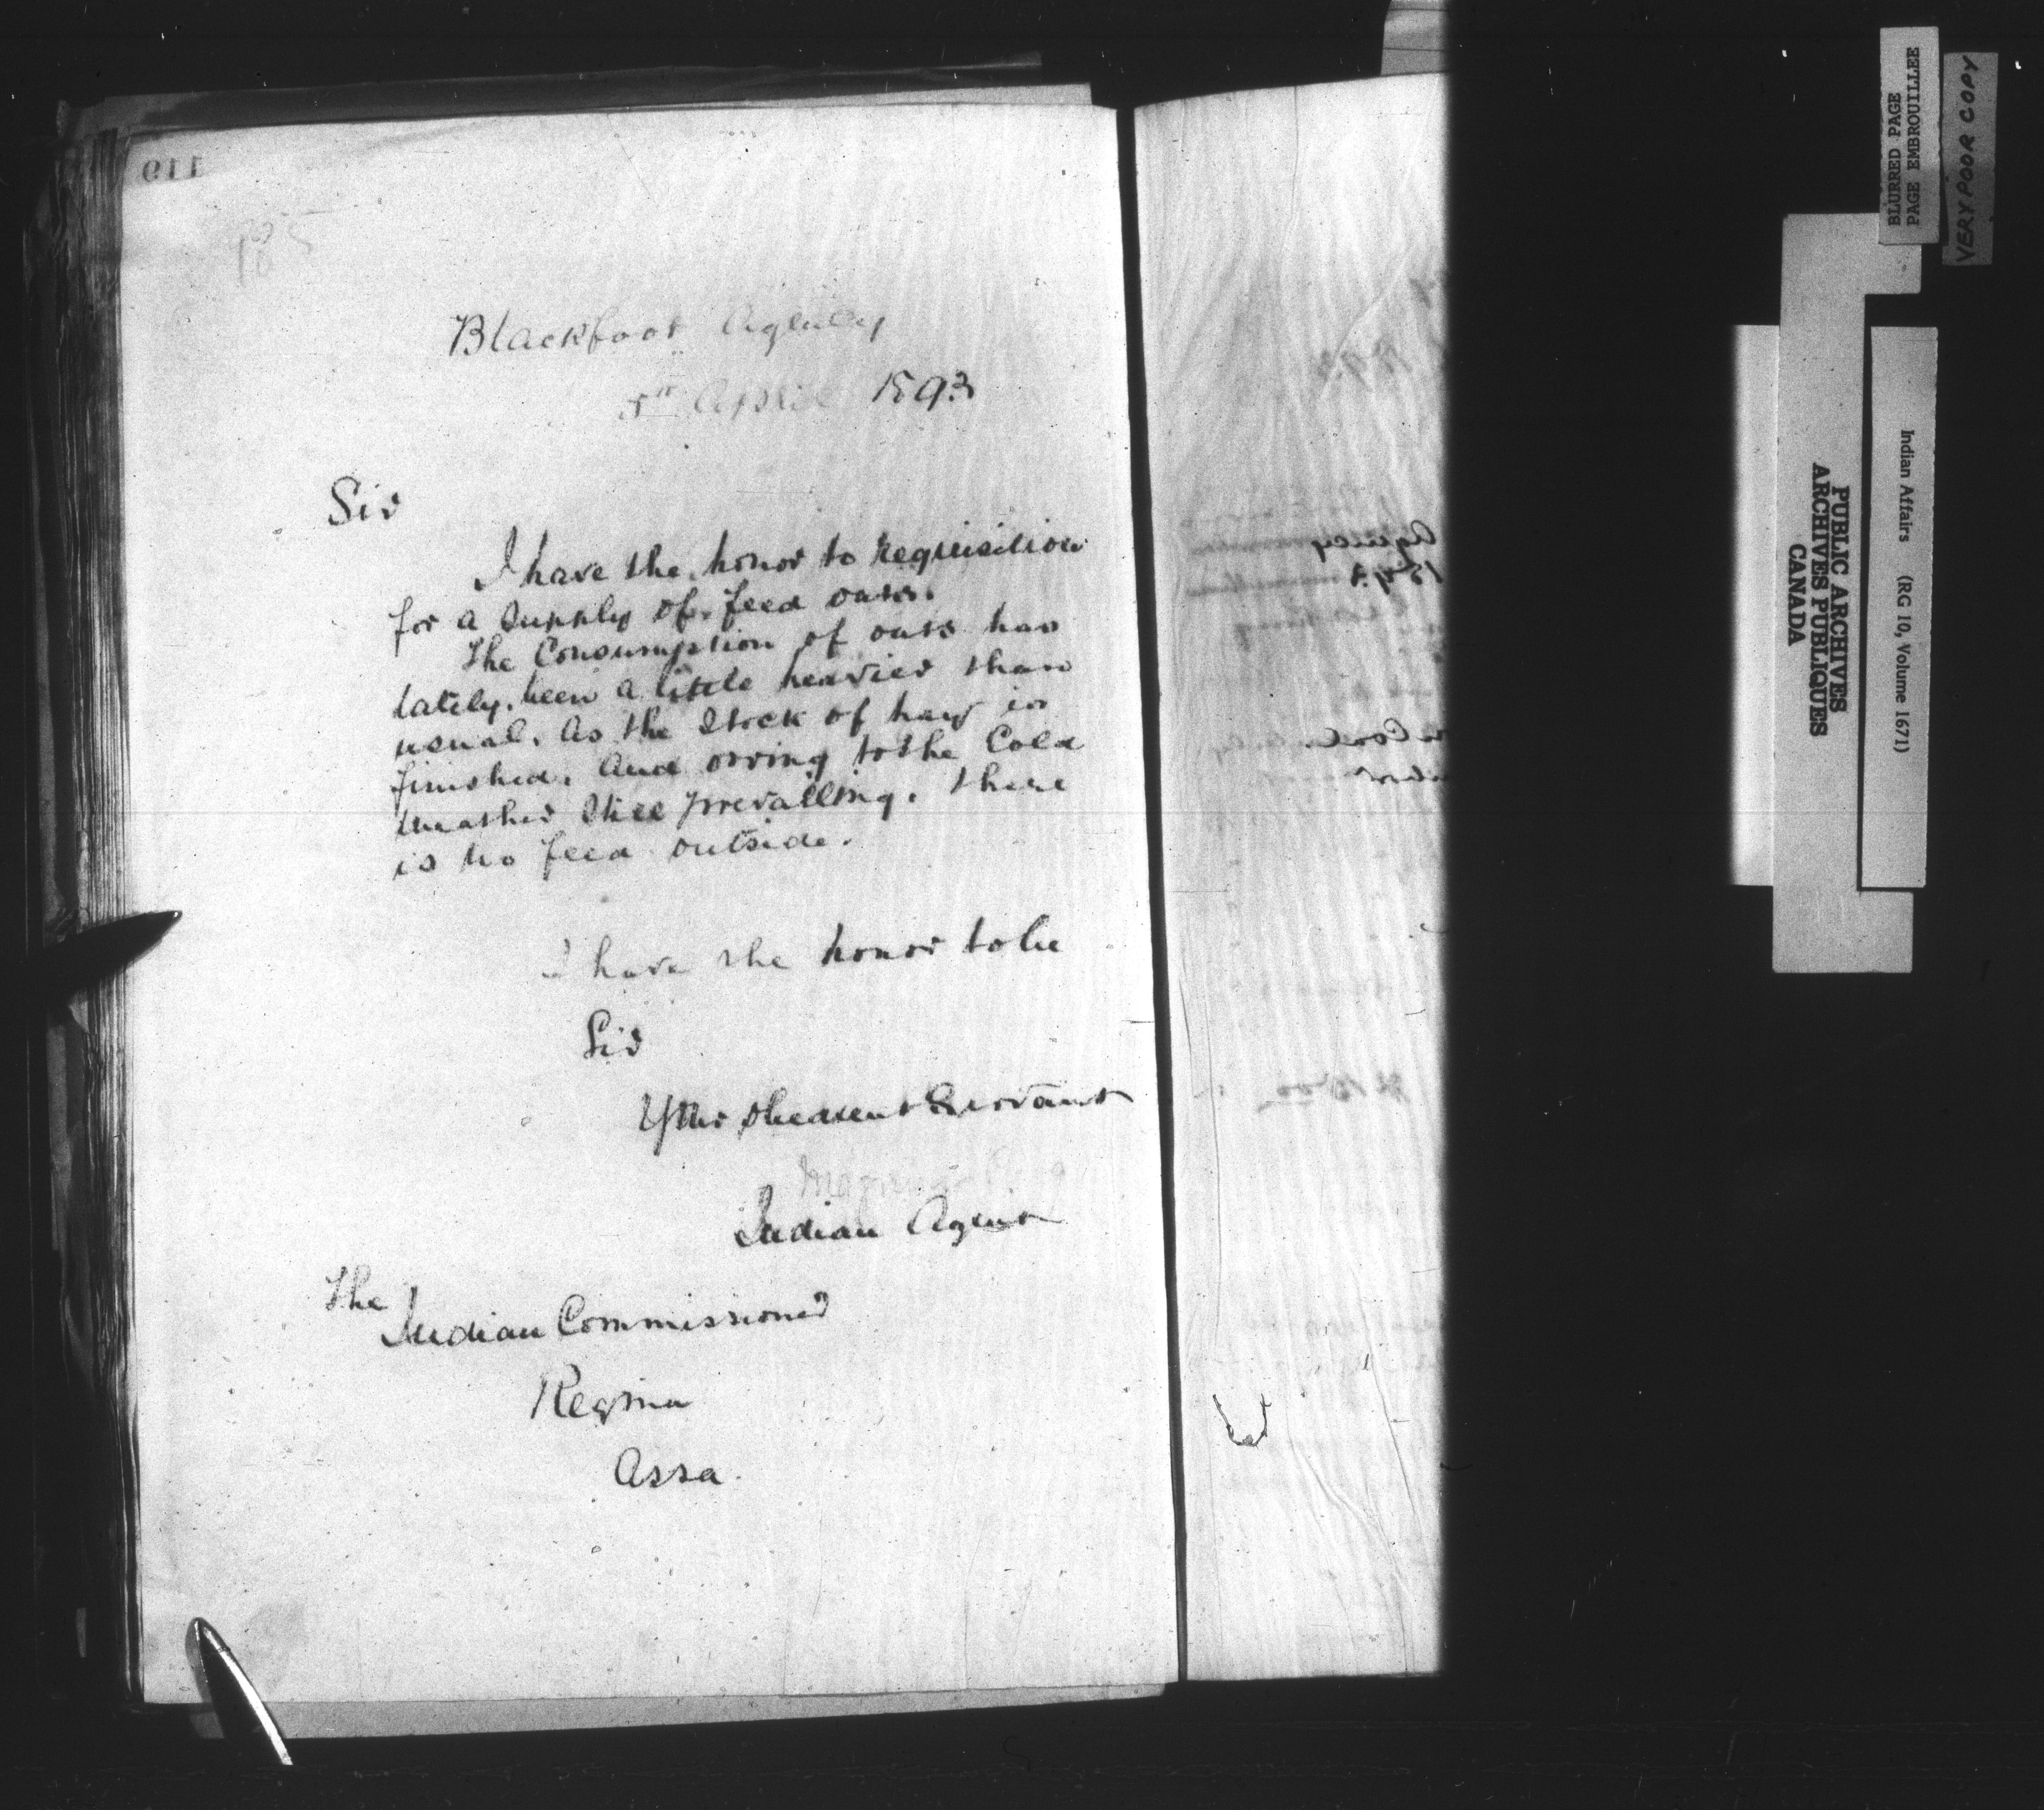 Blackfoot Agency
5th April 1893
Sir
I have the honor to requisition
for a supply of feed oats.
The Consumption of oats has
lately been a little heavier than
usual. As the Stock of hay is
finished. And owing to the Cold
weather Still prevailing. there
is no feed outside.
I have the honor to be
Sir
Your obedient Servant
Magnus Begg
Indian Agent
The
Indian Commissioner
Regina
Assa.
Agency
BLURRED PAGE
PAGE EMBROUILLEE
VERY POOR COPY
PUBLIC ARCHIVES
ARCHIVES PUBLIQUES
CANADA
Indian Affairs (RG 10, Volume 1671)